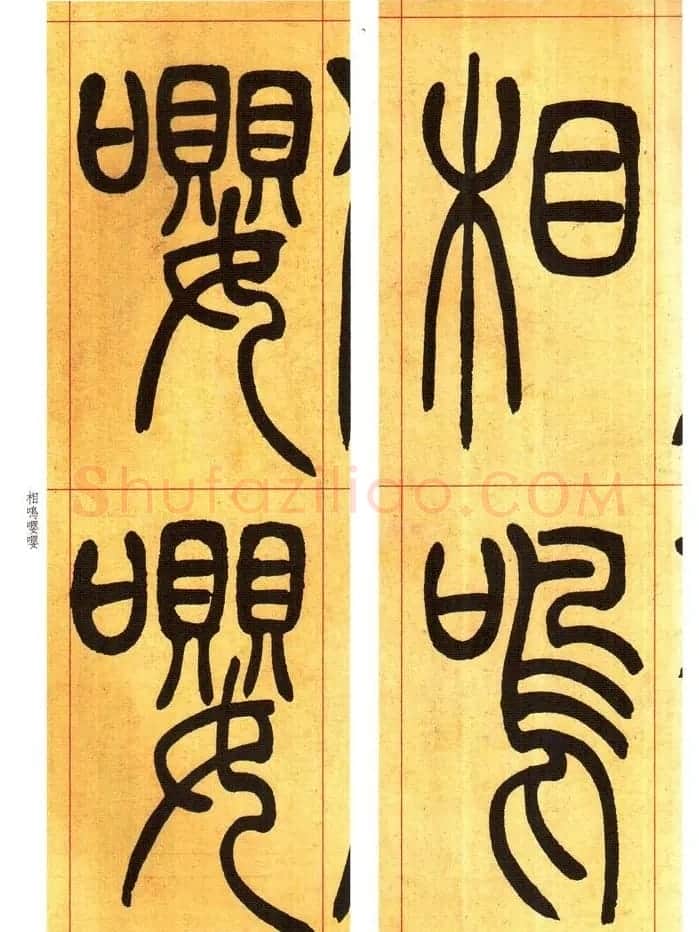 相鳴
嚶嚶
相鳴嚶嚶
Shufaziliao.COM